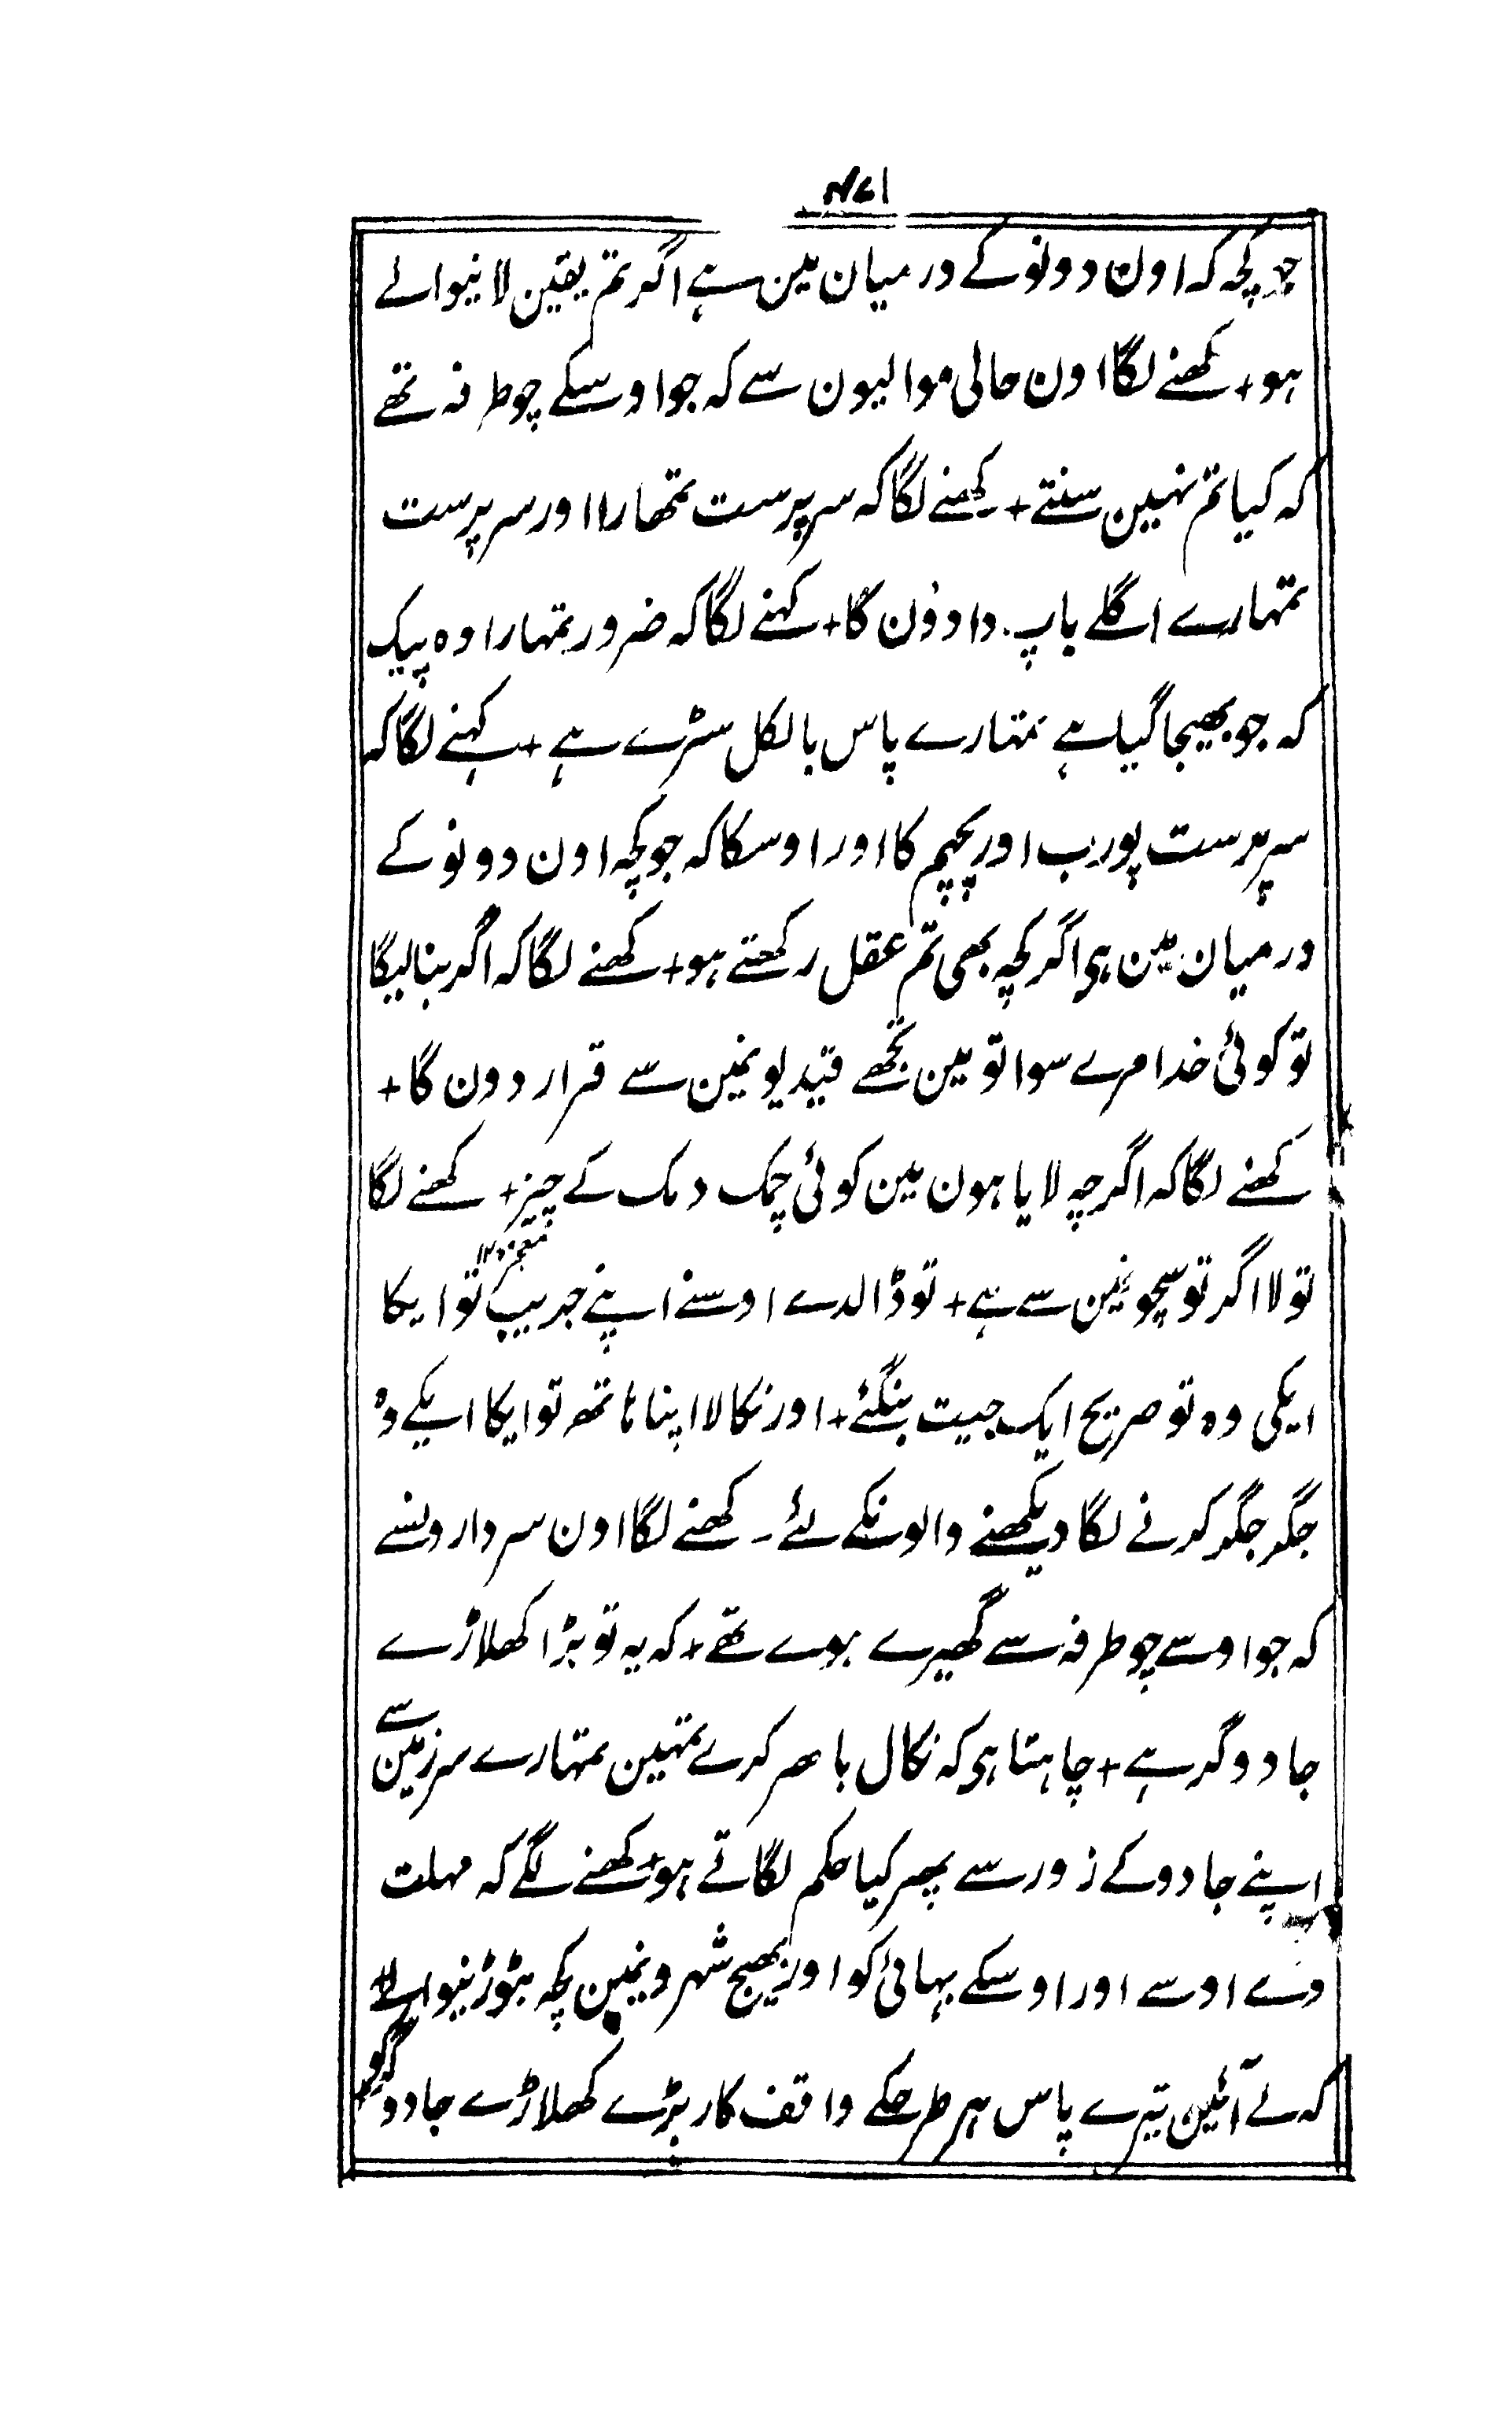 جو کچھ کہ اون دونو کے درمیان مین ہے اگر تم یقین لانیوالے
ہو + کھنے لگا اون حالی موالیون سے کہ جو اوسکے چوطرفہ تھے
کہ کیا تم نہین سنتے + کھنے لگا کہ سرپرست تمھارا اور سرپرست
تمہارے اگلے باپ دادؤن کا + کہنے لگا کہ ضرور تمہارا وہ پیک
کہ جو بھیجا گیا ہے تمہارے پاس بالکل سڑے ہے + کہنے لگا کہ
سرپرست پورب اور پچھم کا اور اوسکا کہ جو کچھ اون دونو کے
درمیان مین ہی اگر کچھ بھی تم عقل رکھتے ہو + کھنے لگا کہ اگر بنالیگا
تو کوئی خدا مرے سوا تو مین تجھے قیدیونمین سے قرار دون گا +
کھنے لگا کہ اگرچہ لایا ہون مین کوئی چمک دمک کے چیز + کھنے لگا
تو لا اگر تو سچونمین سے ہے + تو ڈالدے اوسنے اپنے جریب تو ایکا
ایکی وہ تو صریح ایک جیت بنگئے + اور نکالا اپنا ہاتھ تو ایکا ایکے وہ
جگر جگر کرنے لگا دیکھنے والونکے لئے ۔ کھنے لگا اون سردارونسے
کہ جو اوسے چوطرفہ سے گھیرے ہوے تھے + کہ یہ تو بڑا کھلاڑے
جادوگر ہے + چاہتا ہی کہ نکال باھر کرے تمہین تمہارے سرزمین سے
اپنے جادو کے زور سے پھر کیا حکم لگاتے ہو + کھنے لگے کہ مہلت
دے اوسے اور اوسکے بہائی کو اور بھیج شہرونمین کچھ بٹوڑنیوالے
کہ لے آئین تیرے پاس ہر طرحکے واقف کار بڑے کھلاڑے جادوگر کو +